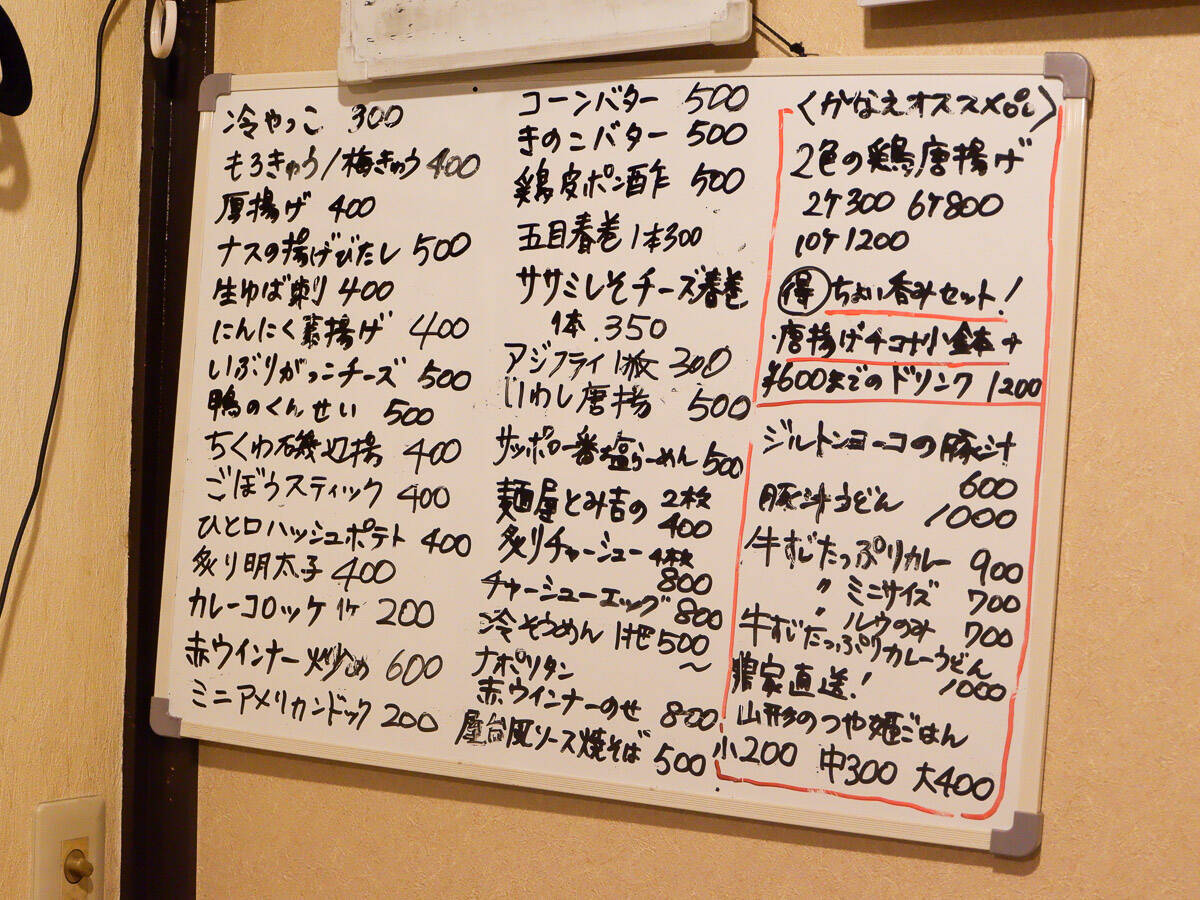 冷やっこ 300
もろきゅう/梅きゅう 400
厚揚げ 400
ナスの揚げびたし 500
生ゆば刺り 400
にんにく素揚げ 400
いぶりがっこチーズ 500
鴨のくんせい 500
ちくわ磯辺揚 400
ごぼうスティック 400
ひと口ハッシュポテト 400
炙り明太子 400
カレーコロッケ 1ケ 200
赤ウインナー炒め 600
ミニアメリカンドック 200
コーンバター 500
きのこバター 500
鶏皮ポン酢 500
五目春巻 1本300
ササミしそチーズ春巻
1本.350
アジフライ 1枚 300
いわし唐揚 500
サッポロ一番塩らーめん 500
麺屋とみ吉の 2枚 400
炙りチャーシュー 4枚 800
チャーシューエッグ 800
冷そうめん 1把 500～
ナポリタン
赤ウインナーのせ 800
屋台風ソース焼そば 500
〈かなえオススメ〉
2色の鶏唐揚げ
2ケ300 6ケ800
10ケ1200
得 ちょい呑みセット!
唐揚げチコナ小鉢本+
¥600までのドリンク 1200
ジルトンヨーコの豚汁
600
豚汁うどん 1000
牛すじたっぷりカレー 900
〃 ミニサイズ 700
〃 ルウのみ 700
牛すじたっぷりカレーうどん
1000
農家直送!
山形のつや姫ごはん
小200 中300 大400